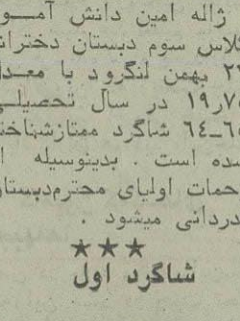 ژاله امین دانش آمــوز
کلاس سوم دبستان دخترانه
۲۲ بهمن لنگرود با معدل
۱۹٫۷۵ در سال تحصیلی
۶۵-۶۴ شاگرد ممتازشناخته
شده است . بدینوسیله
زحمات اولیای محترم‌دبستان
قدردانی میشود .
★★★
شاگرد اول